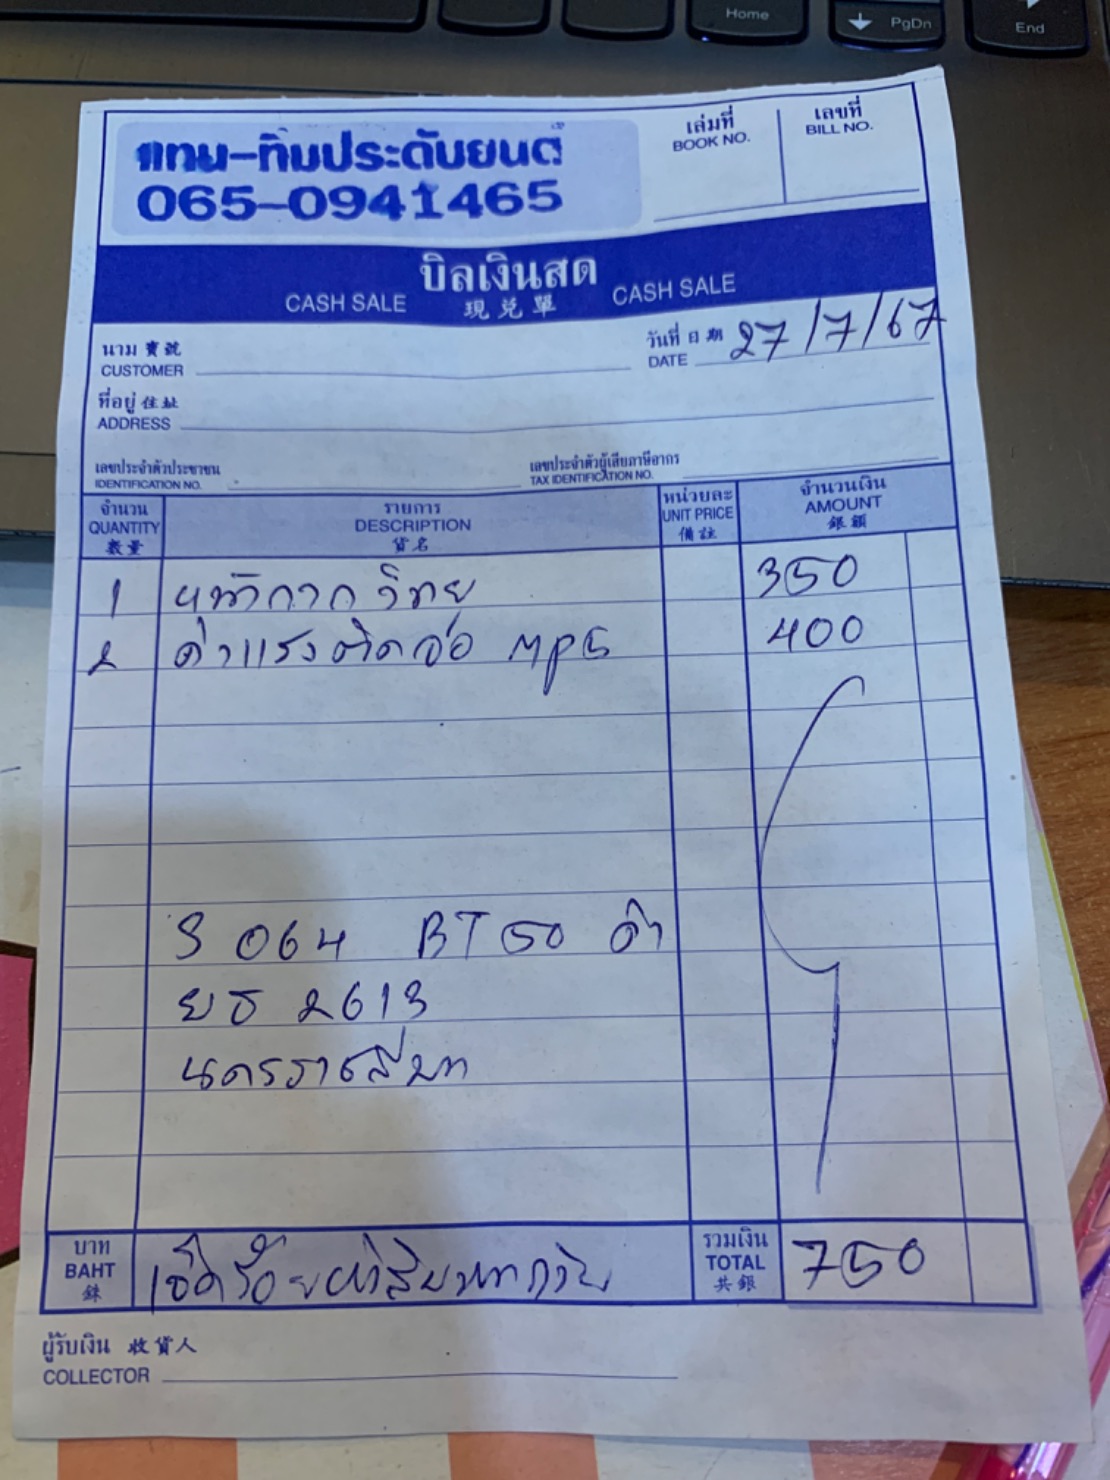 Home
PgDn
End
แทน-ทิมประดับยนต์
065-0941465
เล่มที่
BOOK NO.
เลขที่
BILL NO.
CASH SALE บิลเงินสด CASH SALE
現兌單
นาม 寶號
CUSTOMER
วันที่ 日期 27/7/67
DATE
ที่อยู่ 住址
ADDRESS
เลขประจำตัวประชาชน
IDENTIFICATION NO.
เลขประจำตัวผู้เสียภาษีอากร
TAX IDENTIFICATION NO.
จำนวน
QUANTITY
数量
รายการ
DESCRIPTION
貨名
หน่วยละ
UNIT PRICE
備註
จำนวนเงิน
AMOUNT
銀額
1 หน้ากากวิทยุ 350
2 ค่าแรงติดจอ MP5 400
S 064 BT50 ดำ
ยธ 2613
นครราชสีมา
บาท
BAHT
銖
เจ็ดร้อยห้าสิบบาทถ้วน
รวมเงิน
TOTAL
共銀
750
ผู้รับเงิน 收貨人
COLLECTOR